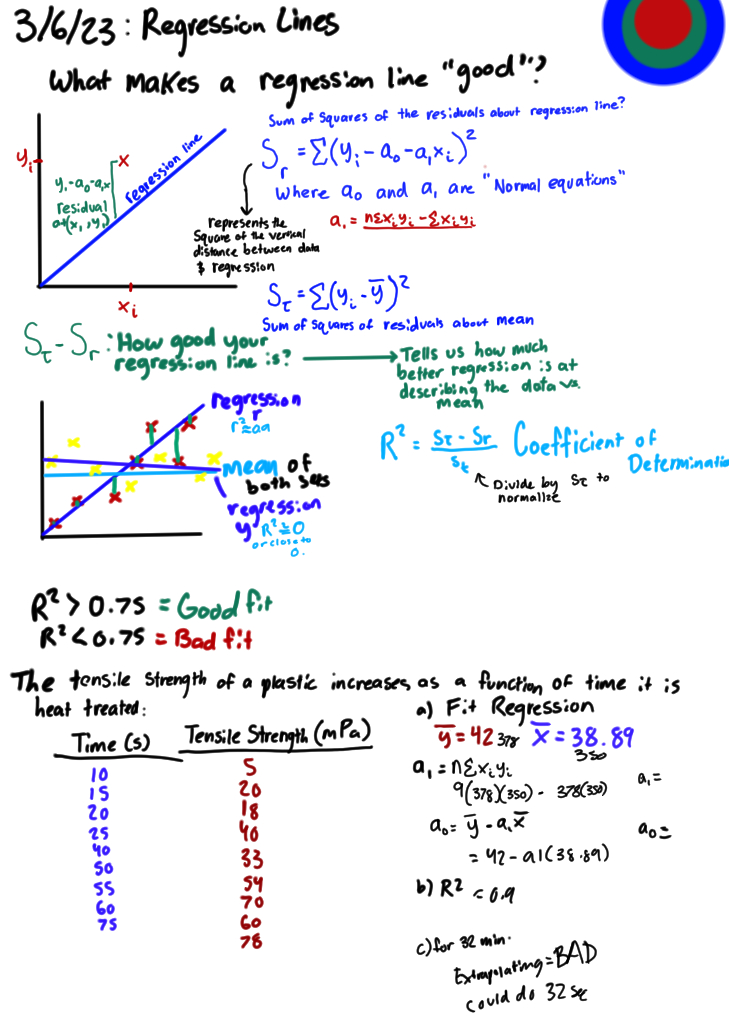 3/6/23: Regression Lines
What makes a regression line "good"?
Sum of Squares of the residuals about regression line?
Sr = Σ(yi - a0 - a1xi)²
Where a0 and a1 are "Normal equations"
a1 = nΣxiyi - Σxiyi
yi
x
yi-a0-a1x
residual
at(x1,y1)
regression line
xi
represents the
Square of the vertical
distance between data
& regression
Sτ = Σ(yi - ȳ)²
Sum of Squares of residuals about mean
Sτ - Sr: How good your
regression line is?
Tells us how much
better regression is at
describing the data vs.
mean
regression
r
mean of
both sets
regression
y R² ≅ 0
or close to
0.
R² = Sτ - Sr
St
Coefficient of
Determinatio
Divide by Sτ to
normalize
R² > 0.75 = Good fit
R² < 0.75 = Bad fit
The tensile strength of a plastic increases as a function of time it is
heat treated:
Time (s) Tensile Strength (mPa)
10 5
15 20
20 18
25 40
40 33
50 54
55 70
60 60
75 78
a) Fit Regression
ȳ = 42 378 x̄ = 38.89
350
a1 = nΣxiyi
9(378)(350) - 378(350) a1 =
a0 = ȳ - a1x̄ a0 =
= 42 - a1(38.89)
b) R² = 0.9
c) for 32 min.
Extrapolating = BAD
could do 32 sec